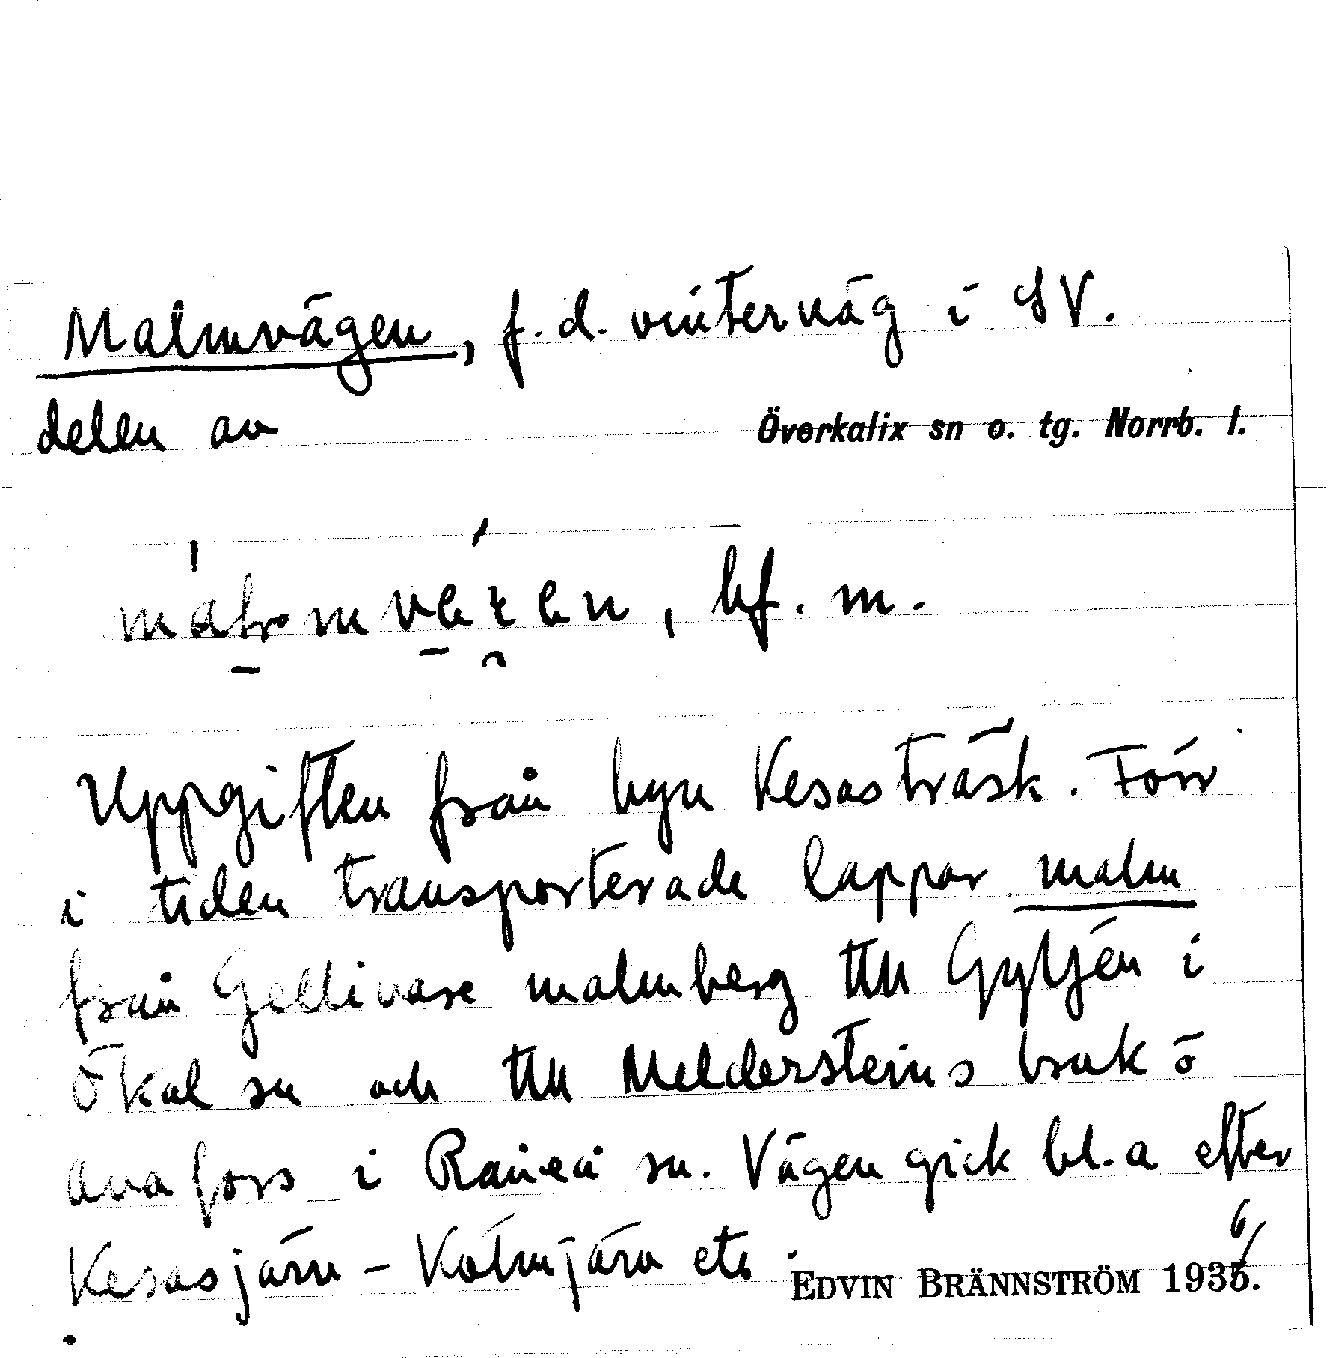 Malmvägen, f.d. vinterväg i SV.
delen av Överkalix sn o. tg. Norrb. l.
bf. m.
Uppgiften från byn Kesasträsk. Förr
i tiden transporterade lappar malm
från Gellivare malmberg till Gyljén i
Ökal sn och till Meldersteins bruk o
ana fors i Råneå sn. Vägen gick bl.a efter
Kesasjärv - Kolmjärv etc.
EDVIN BRÄNNSTRÖM 1936.